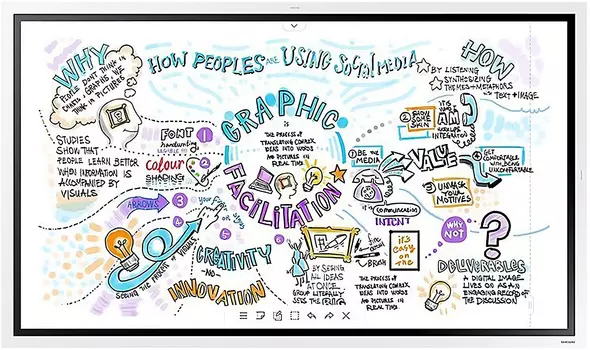 WHY
PEOPLE DON'T THINK IN
CHARTS + GRAPHS, WE
THINK IN PICTURES
HOW PEOPLES ARE USING SOCIAL MEDIA
HOW
BY LISTENING
SYNTHESIZING
THEMES + METAPHORS
TEXT + IMAGE
STUDIES
SHOW THAT
PEOPLE LEARN BETTER
WHEN INFORMATION IS
ACCOMPANIED BY
VISUALS
FONT 1
handwriting
Colour 2
SHADING
ARROWS 3
4
5
6
SEEING THE
GRAPHIC
IS THE PROCESS OF
TRANSLATING COMPLEX
IDEAS INTO WORDS
AND PICTURES IN
REAL TIME
FACILITATION
CREATIVITY
AND
INNOVATION
1 BE THE
MEDIA
2
SAME
SKIN
I AM
VALUE
3 UNMASK
YOUR
MOTIVES
4 GET
COMFORTABLE
WITH BEING
UNCOMFORTABLE
Communication
INTENT
WHY
NOT
?
BY SEEING
ALL IDEAS
AT ONCE
GROUP LITERALLY
SEES THE
BRUSH
it's
easy
on the
THE PROCESS OF
TRANSLATING COMPLEX
IDEAS INTO WORDS
AND PICTURES IN
REAL TIME
DELIVERABLES
A DIGITAL IMAGE
LIVES ON AS AN
ENGAGING RECORD OF
THE DISCUSSION
SAMSUNG